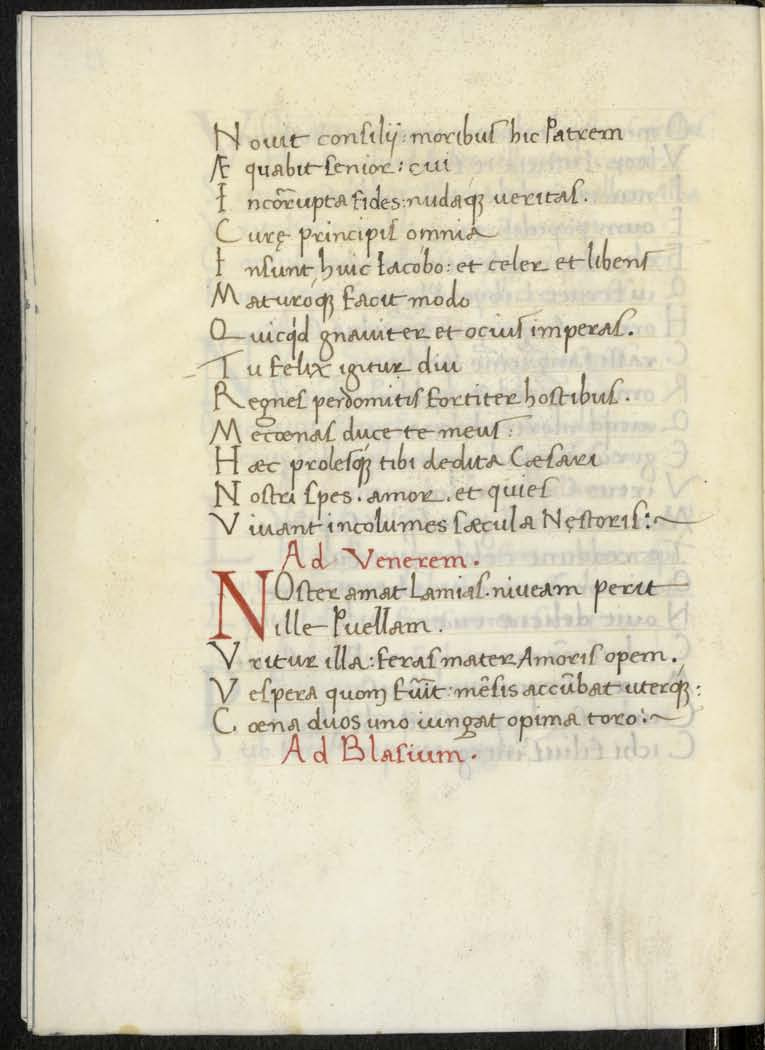 Nouit consilij: moribus hic Patrem
Æquabit senior: cui
Incōrrupta fides: nudaq; ueritas.
Curę principis omnia
Insunt, huic Iacobo: et celer et libens
Maturoq; facit modo
Quicqd gnauiter et ocius imperas.
Tu felix igitur diu
Regnes perdomitis fortiter hostibus.
Mecœnas duce te meus:
Hæc prolesq; tibi dedita Cæsari
Nostri spes. amor. et quies
Viuant incolumes sæcula Nęstoris:~
Ad Venerem.
NOster amat Lamias. niueam perit
ille Puellam.
Vritur illa: feras mater Amoris opem.
Vespera quom fūīt: mēsis accūbat uterq;:
Cœna duos uno iungat opima toro:~
Ad Blasium.